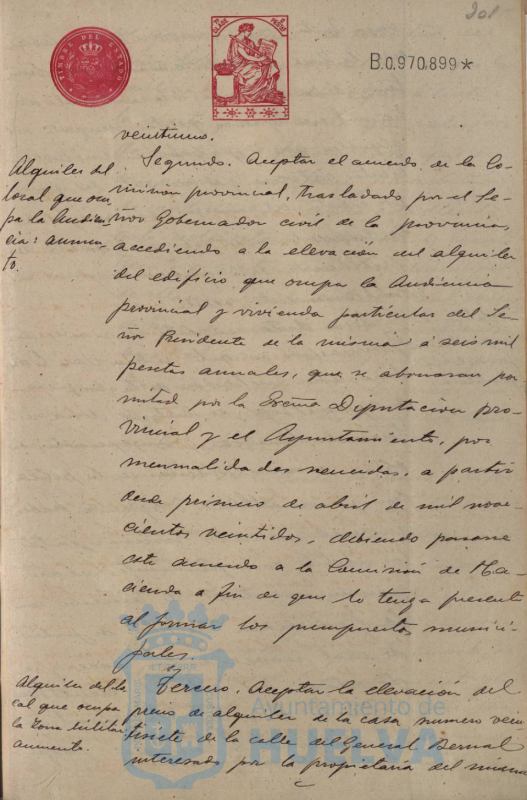 201
TIMBRE DEL ESTADO
B.0.970.899*
veintiuno.
Alquiler del
local que ocu
pa la Audien
cia: aumen
to.
Segundo. Aceptar el acuerdo de la Co-
misión provincial, trasladado por el Se-
ñor Gobernador civil de la provincia,
accediendo a la elevación del alquiler
del edificio que ocupa la Audiencia
provincial y vivienda particular del Se-
ñor Presidente de la misma á seis mil
pesetas anuales, que se abonaran por
mitad por la Excma Diputacion pro-
vincial y el Ayuntamiento, por
mensualidades vencidas, a partir
desde primero de abril de mil nove-
cientos veintidos, debiendo pasarse
este acuerdo a la Comisión de Ha-
cienda a fin de que lo tenga presente
al formar los presupuestos munici-
pales.
Alquiler del lo
cal que ocupa
la Zona militar
aumento.
Tercero. Aceptar la elevación del
precio de alquiler de la casa numero vein
tisiete de la calle del General Bernal
interesado por la propietaria del mismo
Ayuntamiento de
HUELVA